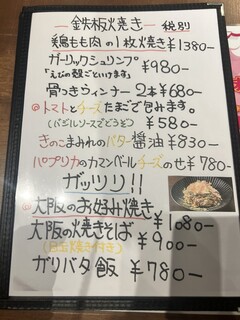 鉄板焼き 税別
鶏もも肉の1枚焼き ¥1380-
ガーリックシュリンプ ¥980-
「えびの殻ごといけます」
骨つきウィンナー 2本 ¥680-
トマトとチーズたまごで包みます。
(バジルソースでどうぞ) ¥580-
きのこまみれのバター醤油 ¥830-
パプリカのカマンベールチーズのせ ¥780-
ガッツリ!!
大阪のお好み焼き ¥1080-
大阪の焼きそば ¥900-
(目玉焼き付き)
ガリバタ飯 ¥780-